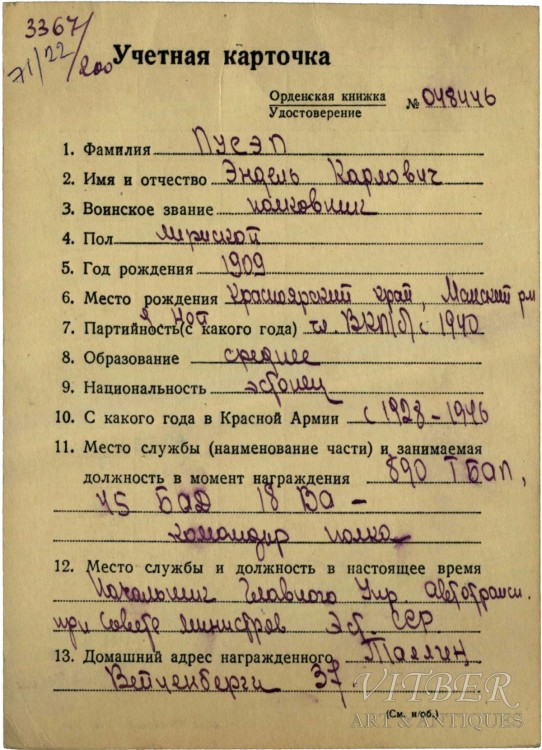 3367/
71/22/200
Учетная карточка
Орденская книжка
Удостоверение
№ 048446
1. Фамилия ПУСЭП
2. Имя и отчество Эндель Карлович
3. Воинское звание полковник
4. Пол мужской
5. Год рождения 1909
6. Место рождения Красноярский край, Манский р-н
7. Партийность (с какого года) чл. ВКП(б) с 1940
8. Образование среднее
9. Национальность эстонец
10. С какого года в Красной Армии с 1928-1946
11. Место службы (наименование части) и занимаемая
должность в момент награждения 890 ТБАП,
45 БАД 18 ВА -
командир полка
12. Место службы и должность в настоящее время
Начальник Главного Упр. автотрансп.
при Совете министров Эст. ССР.
13. Домашний адрес награжденного Таллин,
Вейценберги 37.
(См. н/об.)
VITBER
ART & ANTIQUES